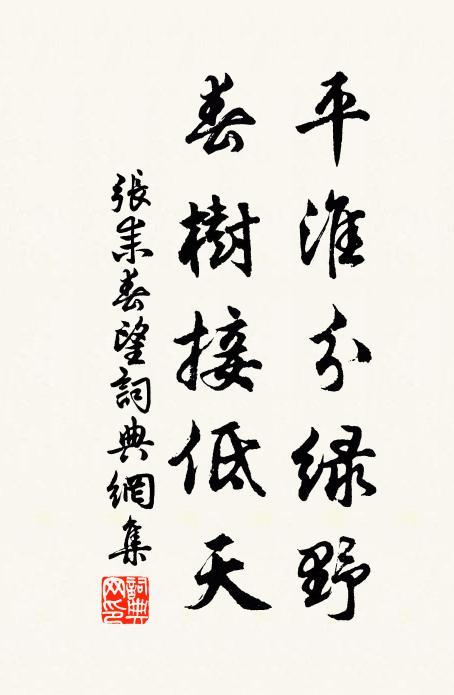 平淮分綠野
春樹接低天
張耒春望詞典網集
詞典網印